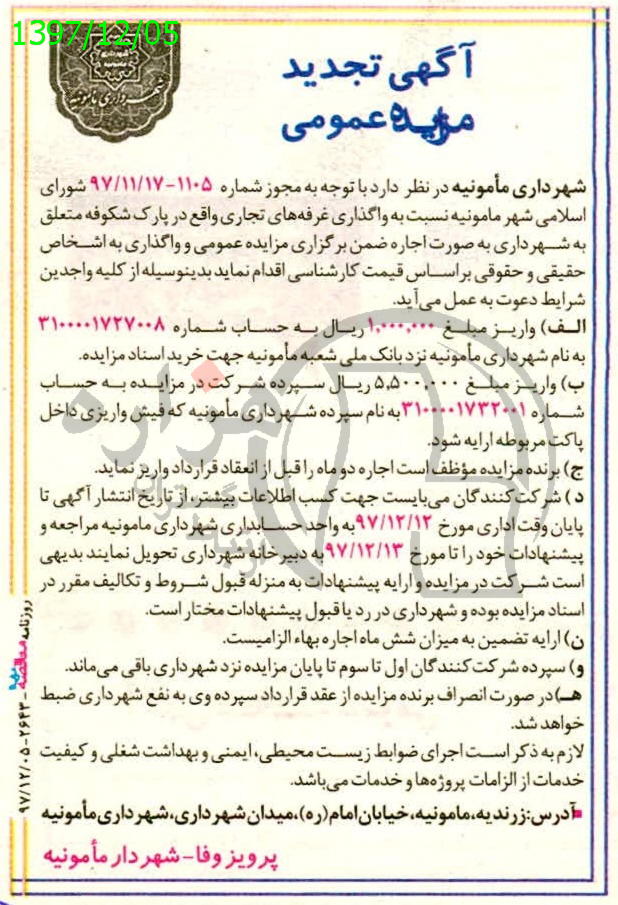 1397/12/05
شهرداری مأمونیه
آگهی تجدید
مزایده عمومی
شهرداری مأمونیه در نظر دارد با توجه به مجوز شماره ۱۱۰۵-۹۷/۱۱/۱۷ شورای
اسلامی شهر مامونیه نسبت به واگذاری غرفه‌های تجاری واقع در پارک شکوفه متعلق
به شهرداری به صورت اجاره ضمن برگزاری مزایده عمومی و واگذاری به اشخاص
حقیقی و حقوقی براساس قیمت کارشناسی اقدام نماید بدینوسیله از کلیه واجدین
شرایط دعوت به عمل می‌آید.
الف) واریز مبلغ ۱,۰۰۰,۰۰۰ ریال به حساب شماره ۳۱۰۰۰۰۱۷۲۷۰۰۸
به نام شهرداری مأمونیه نزد بانک ملی شعبه مأمونیه جهت خرید اسناد مزایده.
ب) واریز مبلغ ۵,۵۰۰,۰۰۰ ریال سپرده شرکت در مزایده به حساب
شماره ۳۱۰۰۰۰۱۷۳۲۰۰۱ به نام سپرده شهرداری مأمونیه که فیش واریزی داخل
پاکت مربوطه ارایه شود.
ج) برنده مزایده مؤظف است اجاره دو ماه را قبل از انعقاد قرارداد واریز نماید.
د) شرکت‌کنندگان می‌بایست جهت کسب اطلاعات بیشتر، از تاریخ انتشار آگهی تا
پایان وقت اداری مورخ ۹۷/۱۲/۱۲ به واحد حسابداری شهرداری مامونیه مراجعه و
پیشنهادات خود را تا مورخ ۹۷/۱۲/۱۳ به دبیرخانه شهرداری تحویل نمایند بدیهی
است شرکت در مزایده و ارایه پیشنهادات به منزله قبول شروط و تکالیف مقرر در
اسناد مزایده بوده و شهرداری در رد یا قبول پیشنهادات مختار است.
ن) ارایه تضمین به میزان شش ماه اجاره بهاء الزامیست.
و) سپرده شرکت‌کنندگان اول تا سوم تا پایان مزایده نزد شهرداری باقی می‌ماند.
هـ) در صورت انصراف برنده مزایده از عقد قرارداد سپرده وی به نفع شهرداری ضبط
خواهد شد.
لازم به ذکر است اجرای ضوابط زیست محیطی، ایمنی و بهداشت شغلی و کیفیت
خدمات از الزامات پروژه‌ها و خدمات می‌باشد.
آدرس: زرندیه، مامونیه، خیابان امام (ره)، میدان شهرداری، شهرداری مأمونیه
پرویز وفا - شهردار مأمونیه
روزنامه مناقصه مزایده - ۲۶۴۳ - ۹۷/۱۲/۰۵
هزاره